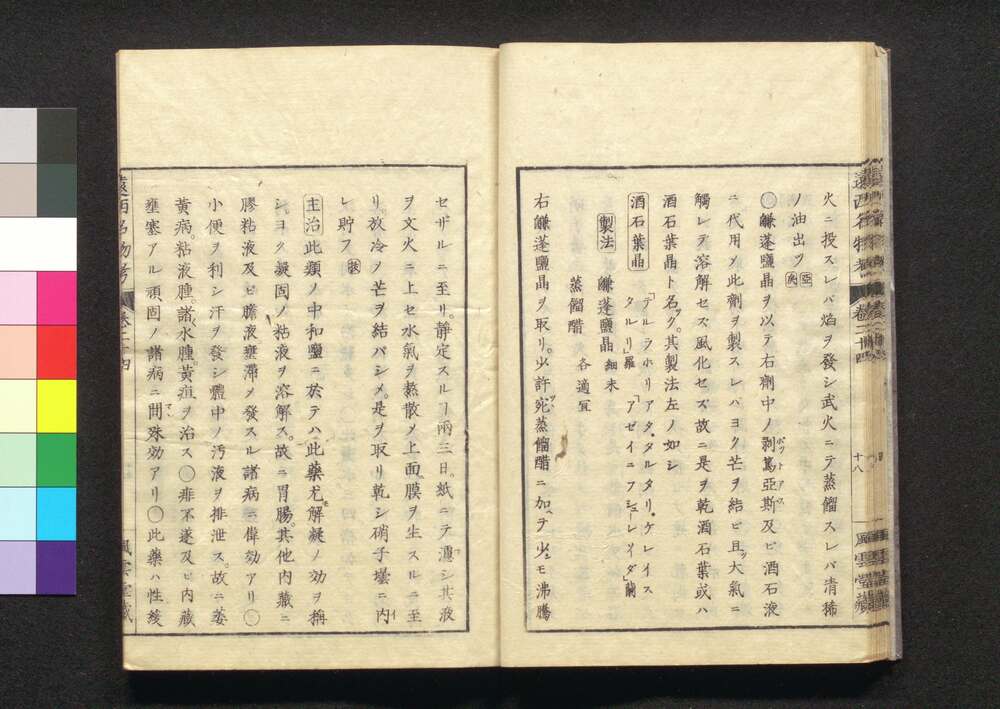 火ニ投スレバ焰ヲ發シ武火ニテ蒸餾スレバ清稀
ノ油出ツ
〇鹻蓬鹽晶ヲ以テ右劑中ノ剥篤亞斯及ヒ酒石液
ニ代用メ此劑ヲ製スレバヨク芒ヲ結ビ且ツ大氣ニ
觸レテ溶解セズ風化セズ故ニ是ヲ乾酒石葉或ハ
酒石葉晶ト名ク。其製法左ノ如シ
酒石葉晶 「テルラホリアタ、タルタリ、ケレイス
タルリ」羅 「アゼイニフシュレソイダ」蘭
製法 鹻蓬鹽晶 細末
蒸餾醋 各適宜
右鹻蓬鹽晶ヲ取リ。少許宛蒸餾醋ニ加ヘテ少シモ沸騰
遠西名物考 卷二十四
十八
風雲堂藏
セザルニ至リ。靜定スルヿ兩三日。紙ニテ濾シ其液
ヲ文火ニ上セ水氣ヲ熬散メ上面ニ膜ヲ生スルニ至
リ。放冷メ芒ヲ結バシメ。是ヲ取リ乾シ硝子壜ニ內
レ貯フ
主治 此類ノ中和鹽ニ於テハ此藥尤モ解凝ノ効ヲ稱
シ。ヨク凝固ノ粘液ヲ溶解ス。故ニ胃腸。其他內藏ニ
膠粘液及ビ膽液壅滯メ發スル諸病ニ偉効アリ〇
小便ヲ利シ汗ヲ發シ體中ノ汚液ヲ排泄ス。故ニ萎
黃病。粘液腫。諸水腫。黃疸ヲ治ス〇痱不遂及ビ內藏
壅塞アル頑固ノ諸病ニ間殊効アリ〇此藥ハ性緩
遠西名物考 卷二十四
風雲堂藏